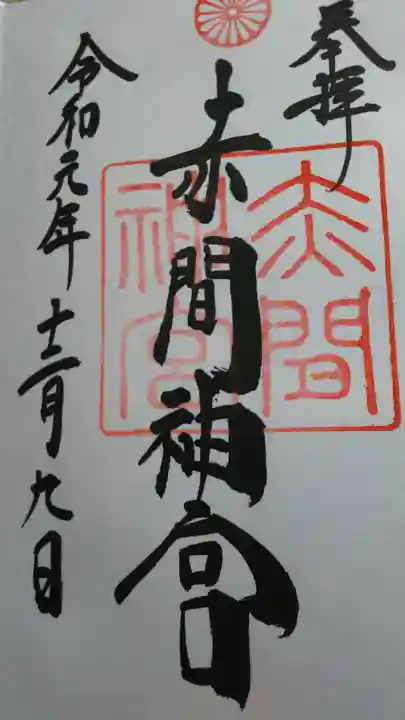 奉拝
赤間神宮
赤間
神宮
令和元年十二月九日